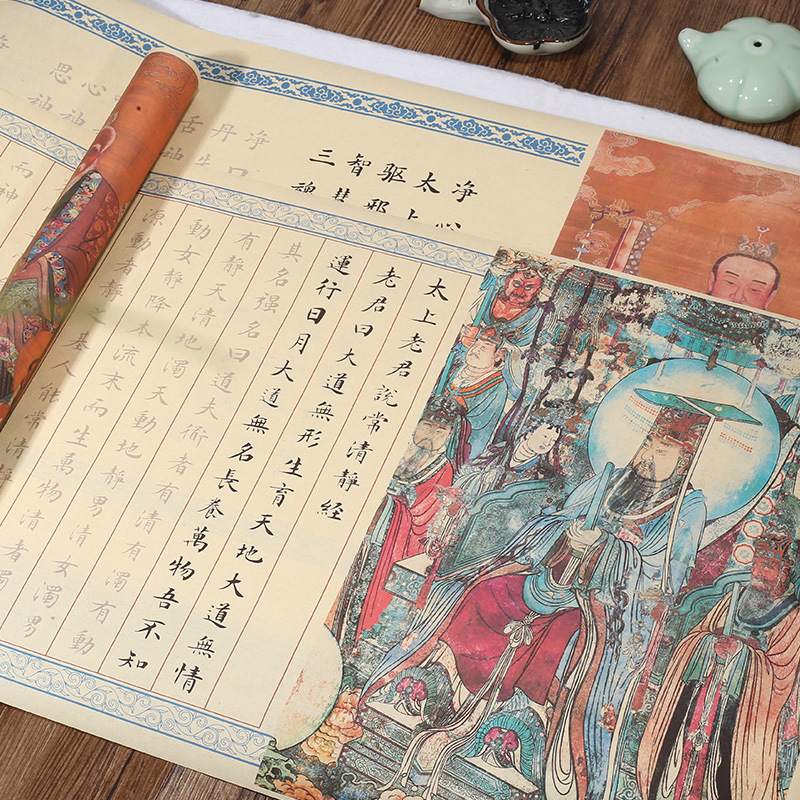 净心
太上
驱邪
智慧
三魂
净口
丹
舌
心神
思
太上老君說常清靜經
老君曰大道無形生育天地大道無情
運行日月大道無名長養萬物吾不知
其名强名曰道夫衜者有清有濁有動
有靜天清地濁天動地靜男清女濁男
動女靜降本流末而生萬物清者濁
源動者靜之基人能常清靜
而神